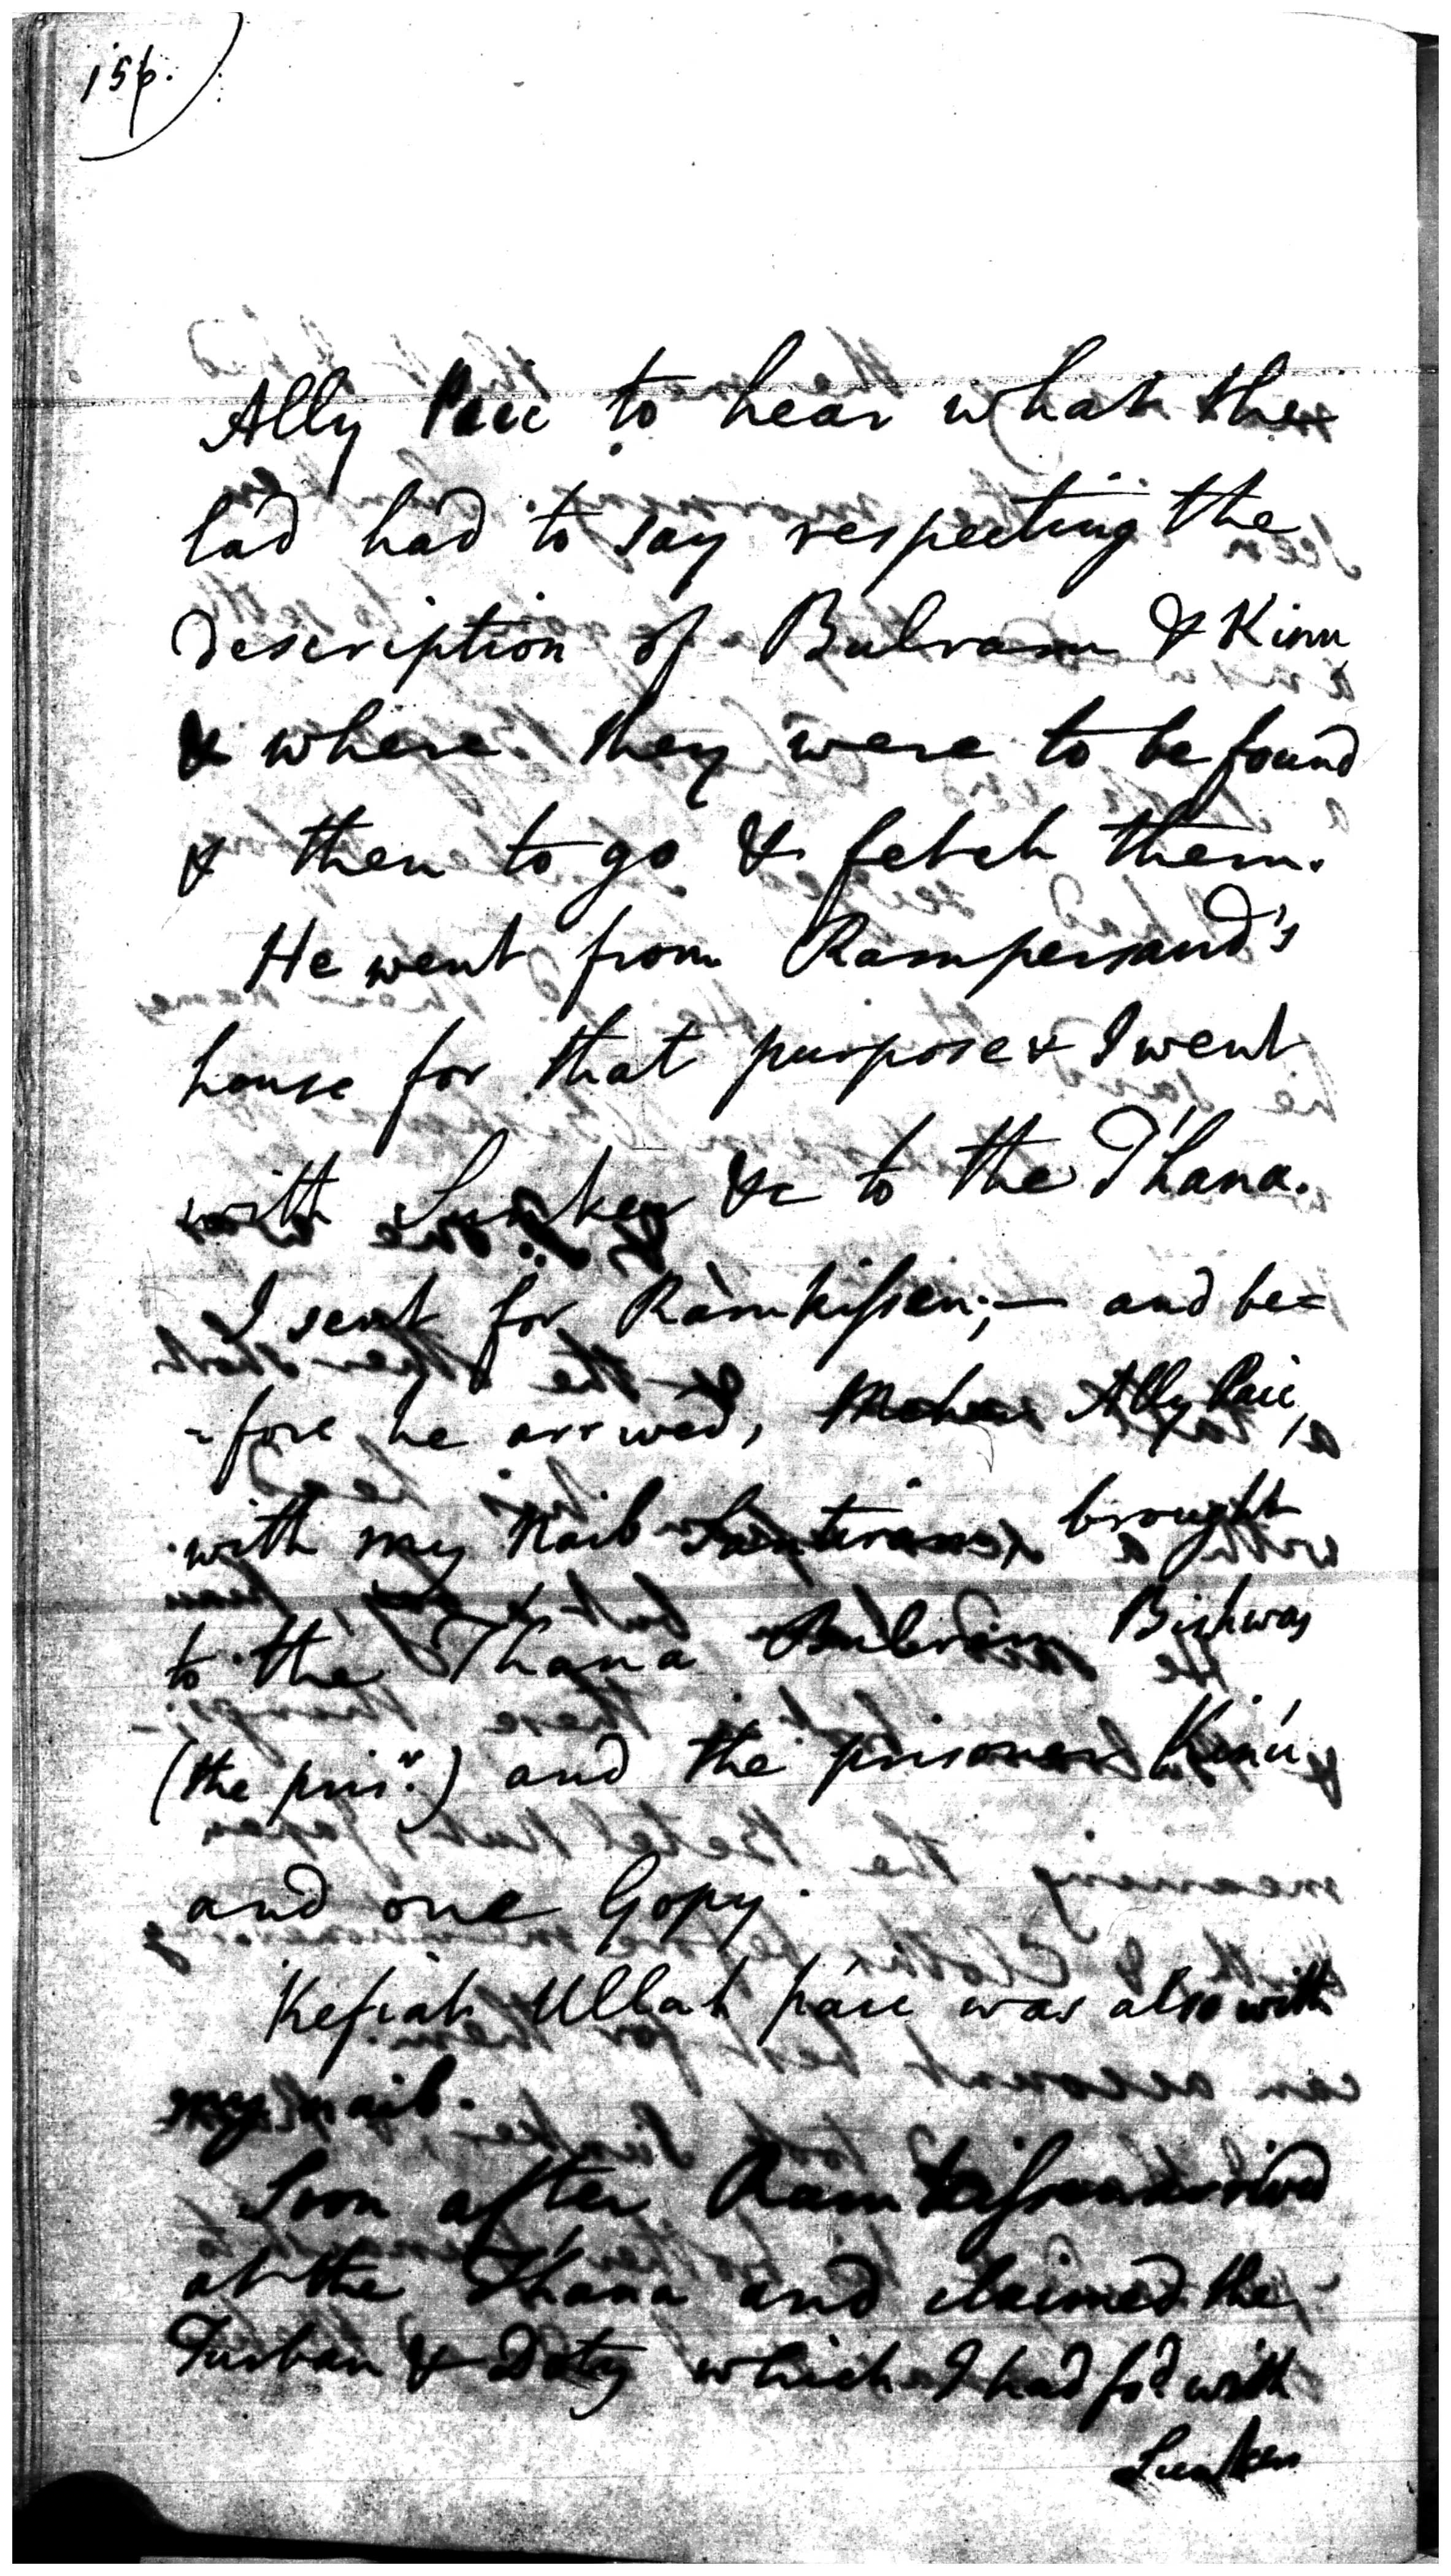 156.
Ally Paic to hear what the
lad had to say respecting the
description of Bulram & Kinu
& where they were to be found
& then to go & fetch them.
He went from Rampersaud's
house for that purpose & I went
with Sunker &c to the T'hana.
I sent for Ràmkissen; — and be=
=fore he arrived, Ally Paic,
with my Naib brought
to the Thana Bulram Bishwas
(the prisr.) and the prisoner Kinú
and one Gopy.
Ullah paic was also with
my naib.
Soon after Ramkissen arrived
at the T'hana and claimed the
Turban & Doty which I had fd. with
Sunker